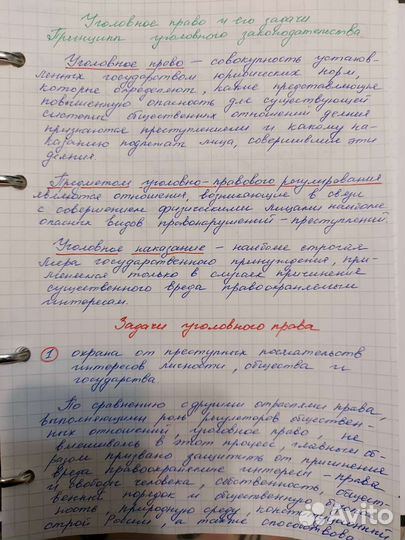 Уголовное право и его задачи
Принципы уголовного законодательства
Уголовное право – совокупность установ-
ленных государством юридических норм,
которые определяют, какие представляющие
повышенную опасность для существующей
системы общественных отношений деяния
признаются преступлениями и какому на-
казанию подлежат лица, совершившие эти
деяния.
Предметом уголовно-правового регулирования
являются отношения, возникающие в связи
с совершением физическими лицами наиболее
опасных видов правонарушений – преступлений
Уголовное наказание – наиболее строгая
мера государственного принуждения, при-
меняемая только в случаях причинения
существенного вреда правоохраняемым
интересам.
Задачи уголовного права
1 охрана от преступных посягательств
интересов личности, общества и
государства
По сравнению с другими отраслями права,
выполняющими роль регуляторов обществен-
ных отношений, уголовное право, не
вмешиваясь в этот процесс, главным об-
разом призвано защитить от причинения
вреда правоохранные интересы – права
и свободы человека, собственность, общест-
венный порядок и общественную безопас-
ность, природную среду, конституционный
строй России, а также способствова
Avito